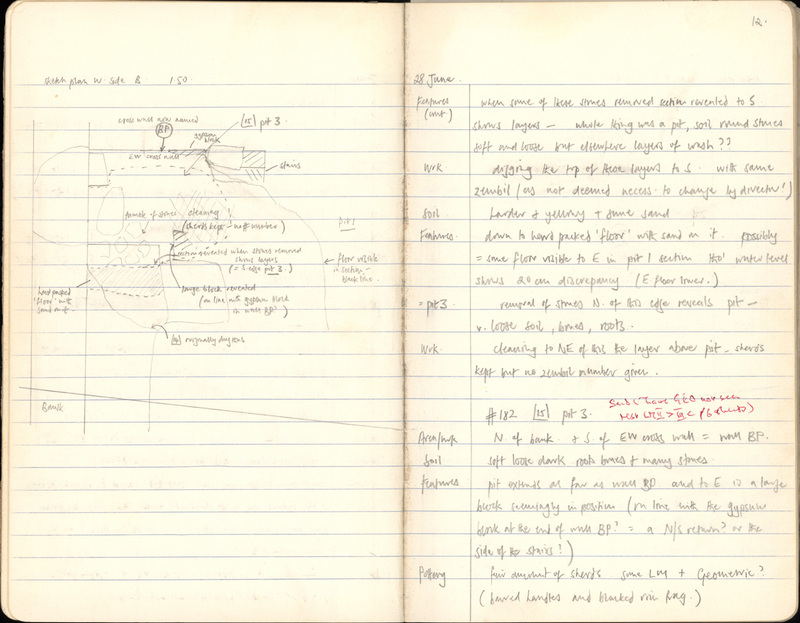 sketch plan W. side B 1:50
cross wall now named
BP
[15] pit 3
gypsum block
EW cross wall
stairs
tumble of stones
cleaning
(sherds kept - no number)
pit 1
section revealed when stones removed
shows layers
(= edge pit 3.)
← floor visible
in section -
black line
large block revealed
(on line with gypsum block
in wall BP)
hard packed
'floor' with
sand on it
originally dug as
Bank
12.
28 June.
Features when some of these stones removed section revealed to S
(cont) shows layers — whole thing was a pit, soil round stones
soft and loose but elsewhere layers of wash??
Work digging the top of these layers to S. with same
zembil (as not deemed necess. to change by director!)
Soil harder & yellowy + some sand
Features. down to hard packed 'floor' with sand on it. possibly
= same floor visible to E in pit 1 section tho' water level
shows 20 cm discrepancy (E. floor lower.)
= pit 3 removal of stones N. of this edge reveals pit —
v. loose soil, bones, roots.
Work. cleaning to NE of this the layer above pit - sherds
kept but no zembil number given.
#182 [15] pit 3.
Area/work N. of bank. & S of EW cross wall = wall BP.
Soil soft loose dark roots bones & many stones.
Features pit extends as far as wall BP and to E is a large
block seemingly in position (on line with the gypsum
block at the end of wall BP? = a N/S return? or the
side of the stairs?)
Pottery fair amount of sherds some LM + Geometric?
(barred handles and blacked rim frag.)